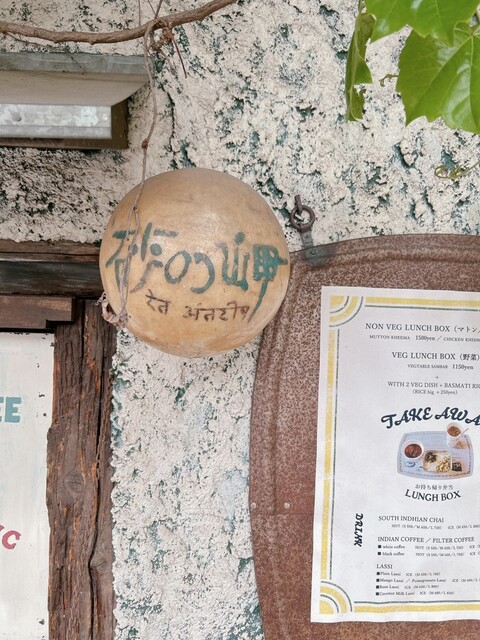 砂の岬
रेत अंतरीप
EE
NON VEG LUNCH BOX (マトン
MUTTON KHEEMA 1500yen / CHICKEN KHEEM
VEG LUNCH BOX (野菜)
VEGETABLE SAMBAR 1150yen
+
WITH 2 VEG DISH + BASMATI RIC
(RICE big + 250yen)
TAKE AWA
お持ち帰り弁当
LUNCH BOX
DRINK
SOUTH INDHIAN CHAI
INDIAN COFFEE / FILTER COFFEE
■ white coffee HOT
■ black coffee HOT
LASSI
■Plain Lassi ICE
■Mango Lassi / Pomegranate Lassi ICE
■Rose Lassi ICE
■Coconut Milk Lassi ICE